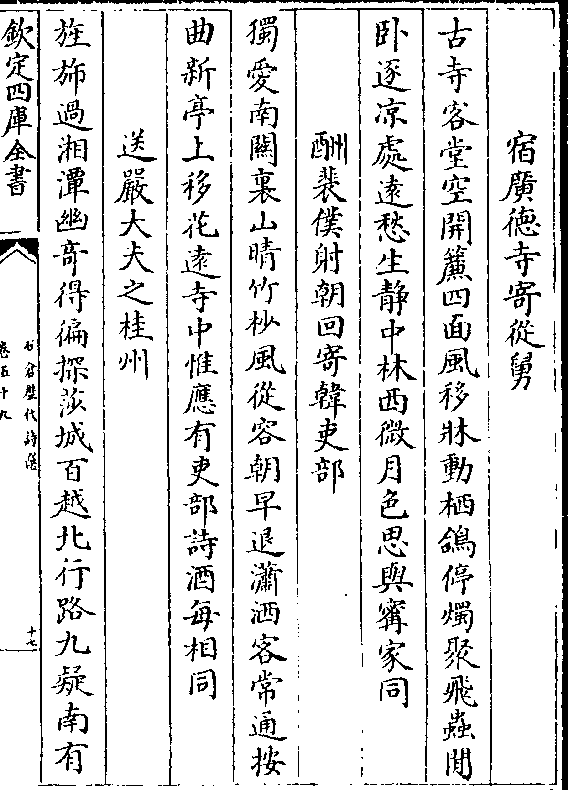 宿廣徳寺寄從舅
古寺客堂空開簾四面風移牀動栖鴿停燭聚飛蟲閒
卧逐凉處遠愁生静中林西微月色思與甯家同
酬裴僕射朝回寄韓吏部
獨愛南關裏山晴竹杪風從容朝早退瀟洒客常通按
曲新亭上移花逺寺中惟應有吏部詩酒每相同
送嚴大夫之桂州
旌斾過湘潭幽奇得徧探莎城百越北行路九疑南有
欽定四庫全書
石倉歷代詩選
卷五十九
十七